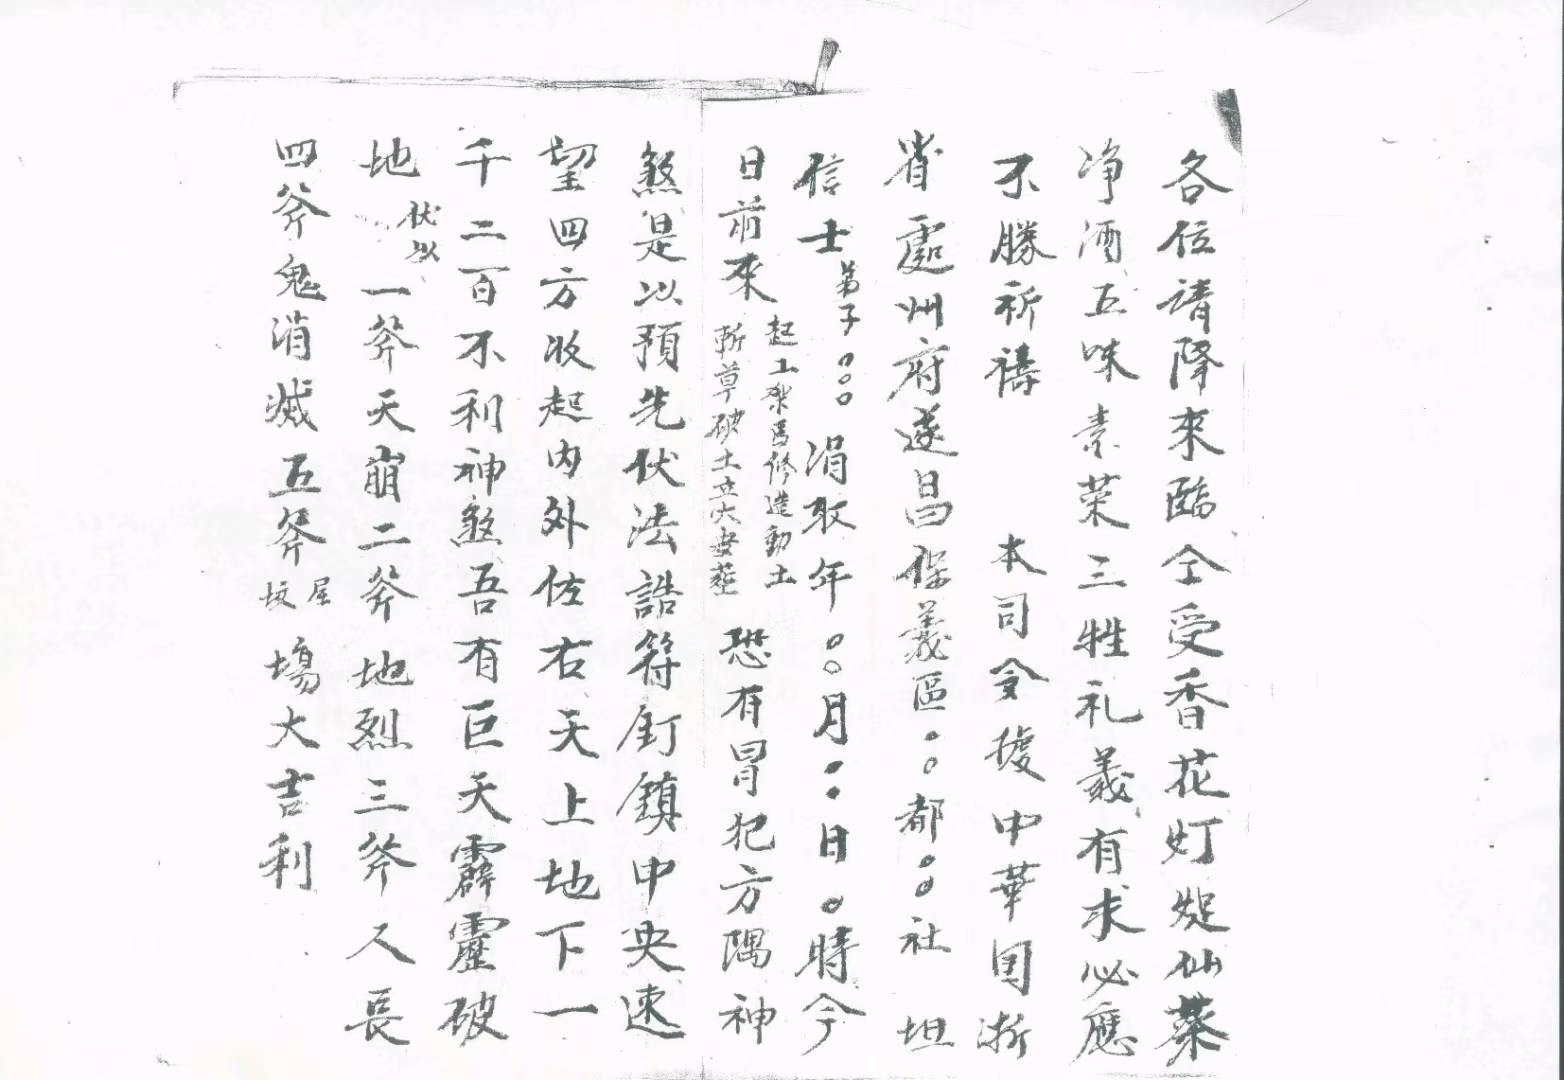 各位请降來臨仝受香花灯炷仙菓
净酒五味素菜三牲礼義有求必應
不勝祈禱 本司今據中華国浙
省處州府遂昌保義區○○都○○社坦
信士弟子○○○涓取年○○月○○日○時今
日前來
起工架馬修造動土
斬草破土立穴安葬
恐有冒犯方隅神
煞是以預先伏法誥符釘鎮中央速
望四方收起内外佐右天上地下一
千二百不利神煞吾有巨天霹靂破
地 伏以 一斧天崩二斧地烈三斧人長
四斧鬼消滅五斧
屋
坟
塲大吉利